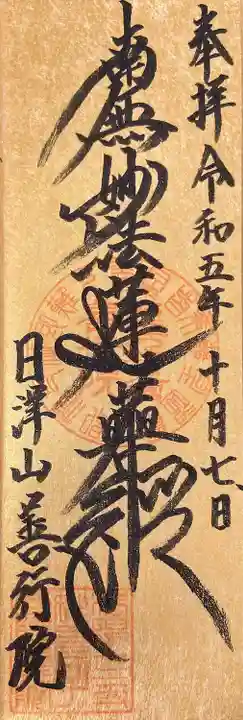 奉拝 令和五年 十月七日
南無妙法蓮華経
日洋山 善行院